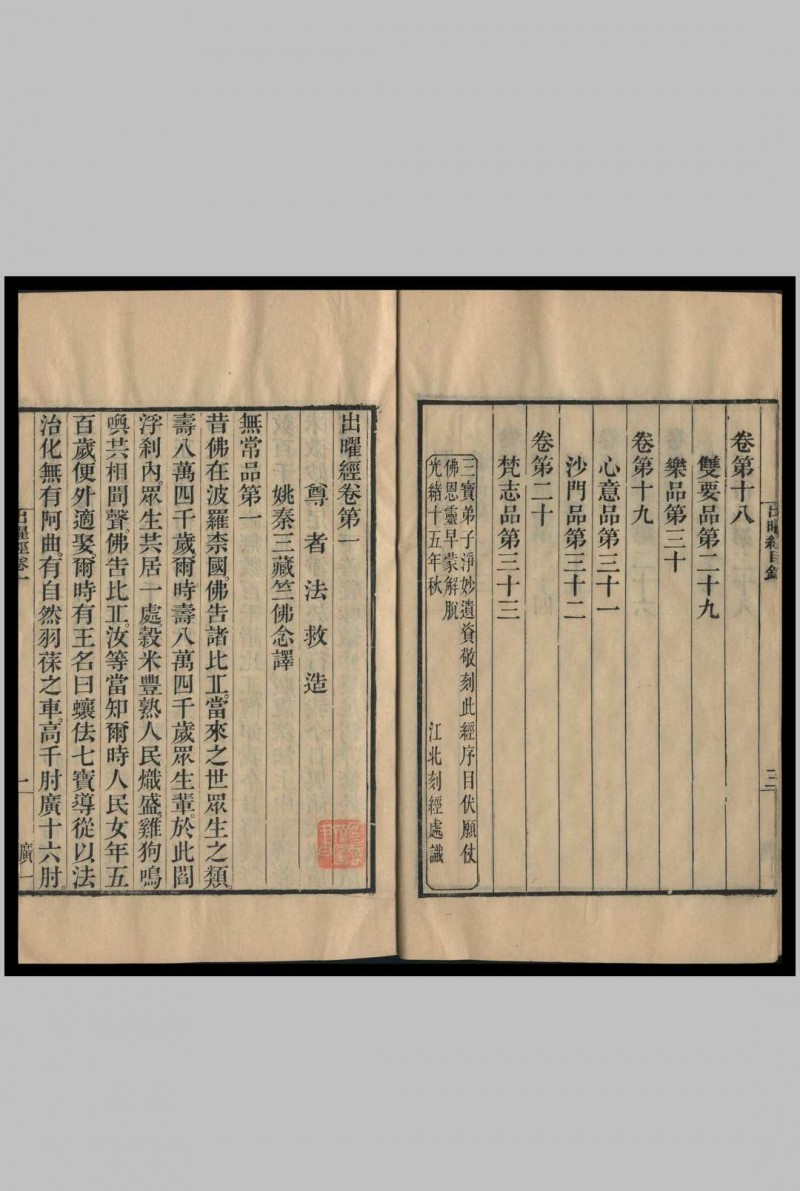 出曜經目錄
三
卷第十八
雙要品第二十九
樂品第三十
卷第十九
心意品第三十一
沙門品第三十二
卷第二十
梵志品第三十三
三寶弟子淨妙遺資敬刻此經序目伏願仗
佛恩靈早蒙解脫
光緒十五年秋 江北刻經處識
出曜經卷第一
尊者法救造
姚秦三藏竺佛念譯
無常品第一
昔佛在波羅柰國。佛告諸比丘。當來之世眾生之類。
壽八萬四千歲爾時壽八萬四千歲眾生輩。於此閻
浮刹內。眾生共居一處。穀米豐熟。人民熾盛。雞狗鳴
喚共相聞聲。佛告比丘。汝等當知爾時人民女年五
百歲便外適娶。爾時有王名曰蠰佉七寶導從以法
治化無有阿曲。有自然羽葆之車。高千肘廣十六肘。
出曜經卷一
一
廣一